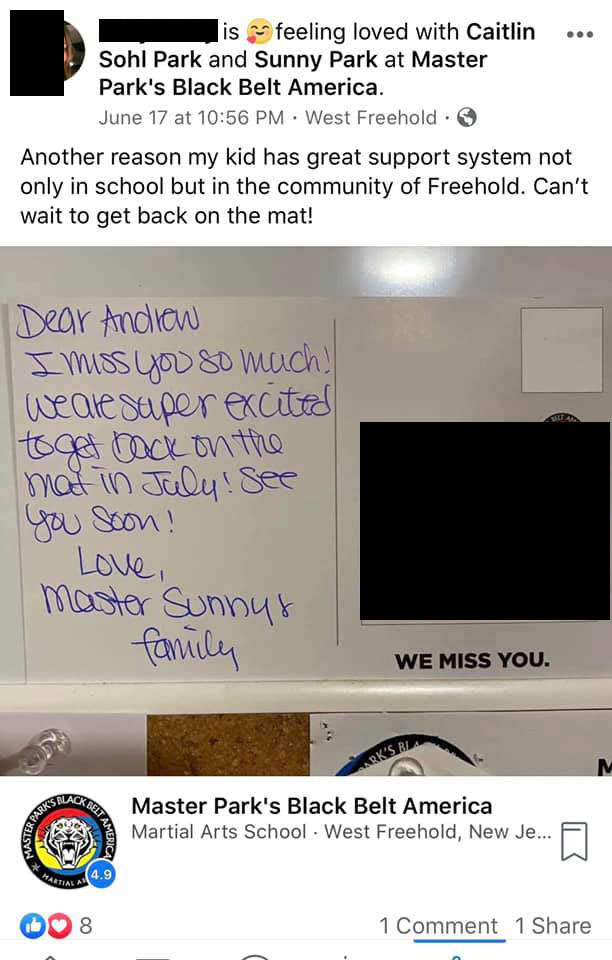 is 🥰 feeling loved with Caitlin
Sohl Park and Sunny Park at Master
Park's Black Belt America.
June 17 at 10:56 PM · West Freehold ·
Another reason my kid has great support system not
only in school but in the community of Freehold. Can't
wait to get back on the mat!
Dear Andrew
I miss you so much!
we are super excited
to get back on the
mat in July! See
you soon!
Love,
Master Sunny &
family
WE MISS YOU.
MASTER PARK'S BLACK BELT AMERICA
4.9
Master Park's Black Belt America
Martial Arts School · West Freehold, New Je...
8
1 Comment 1 Share